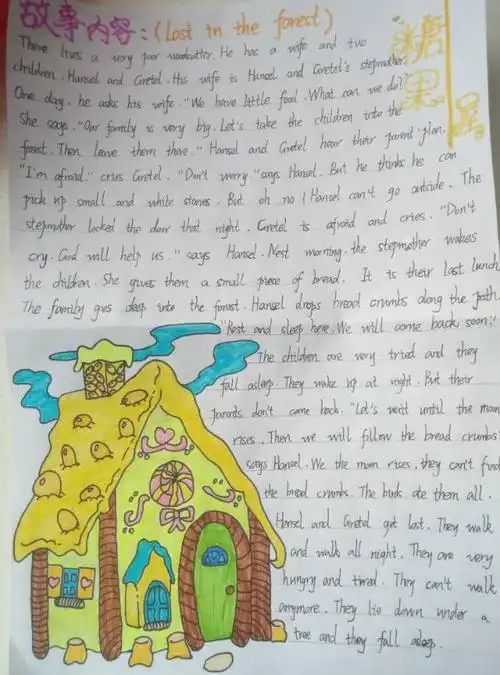 故事内容:(Lost in the forest)
There lives a very poor woodcutter. He has a wife and two
children. Hansel and Gretel. His wife is Hansel and Gretel's stepmother.
One day. he asks his wife. "We have little food. What can we do?"
She says. "Our family is very big. Let's take the children into the
forest. Then leave them there." Hansel and Gretel hear their parent' plan.
"I'm afraid." cries Gretel. "Don't worry." says Hansel. But he thinks he can
pick up small and white stones. But oh no! Hansel can't go outside. The
stepmother locked the door that night. Gretel is afraid and cries. "Don't
cry. God will help us." says Hansel. Next morning. the stepmother wakes
the children. She gives them a small piece of bread. It is their last lunch.
The family goes deep into the forest. Hansel drops bread crumbs along the path.
"Rest and sleep here. We will come back soon!"
The children are very tried and they
fall asleep. They wake up at night. But their
parents don't come back. "Let's wait until the moon
rises. Then we will follow the bread crumbs"
says Hansel. We the moon rises, they can't find
the bread crumbs. The birds ate them all.
Hansel and Gretel get lost. They walk
and walk all night. They are very
hungry and tired. They can't walk
anymore. They lie down under a
tree and they fall asleep.
糖果屋